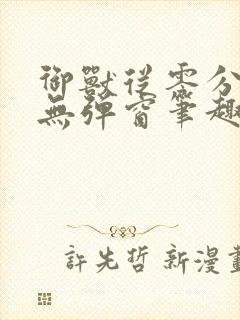 御獸從零分
無彈窗筆趣
許先哲 新漫畫